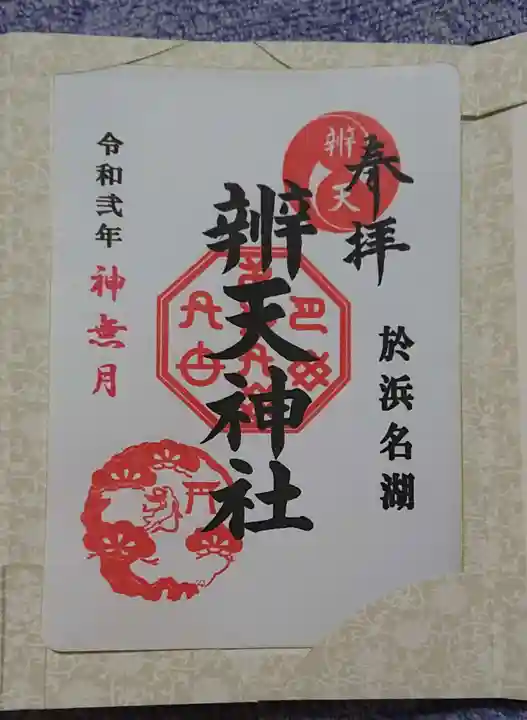 奉拝
於浜名湖
辨天
辨天神社
令和弐年 神無月